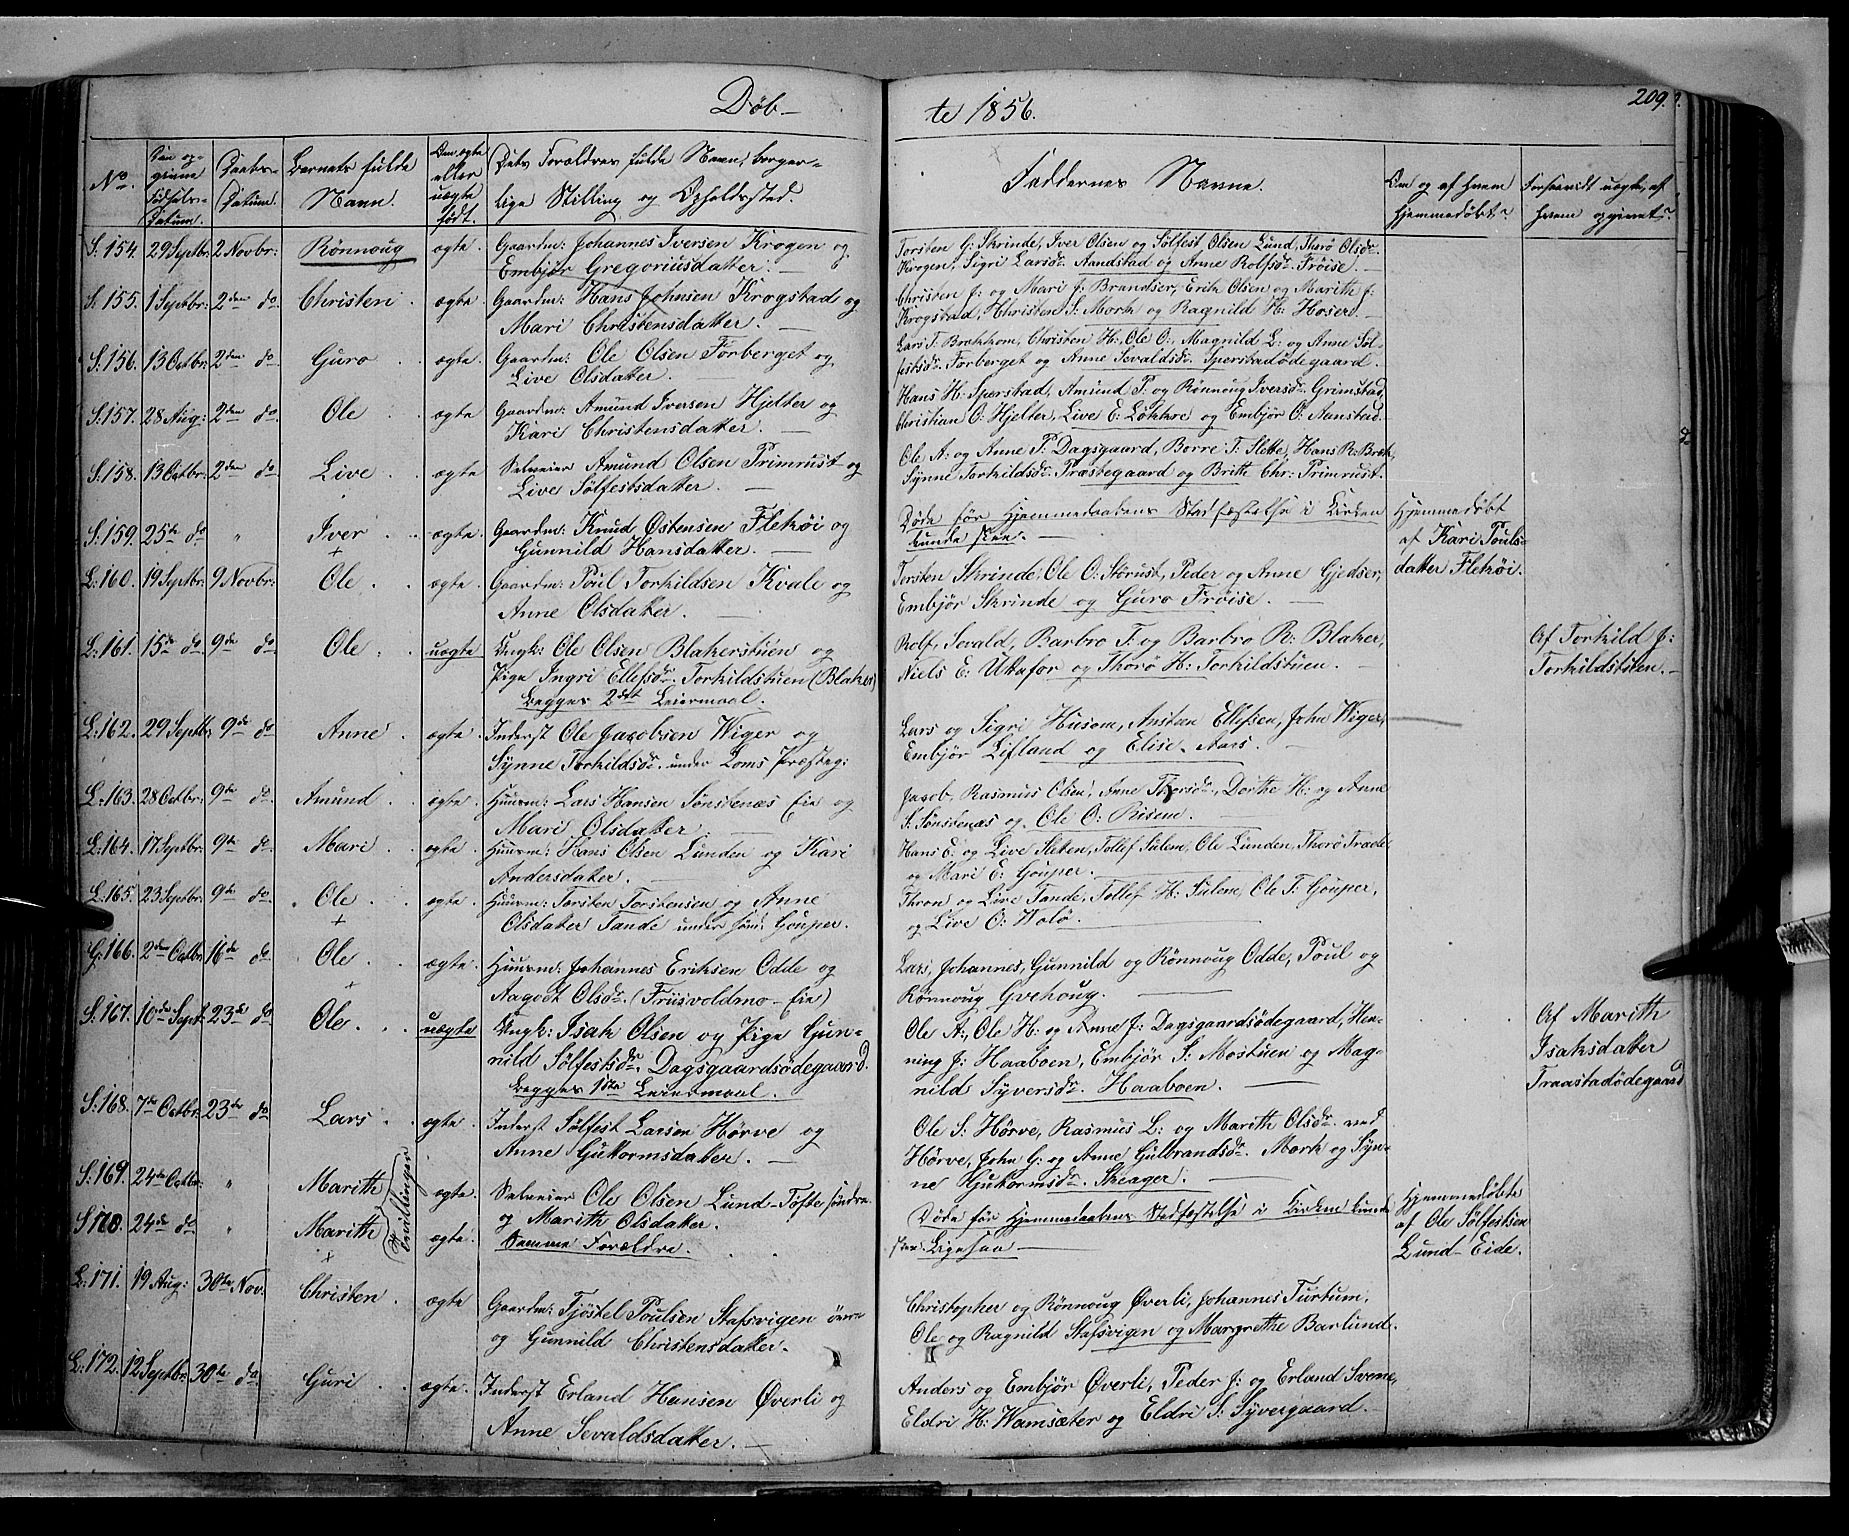 Døb-
te 1856.
209.
No.
Den opgivne Fødsels-Datum.
Daabs-Datum.
Barnets fulde Navn.
Om ægte eller uægte født.
Dets Forældres fulde Navn, borgerlige Stilling og Opholdssted.
Faddernes Navne.
Om og af hvem hjemmedøbt?
Forsaavidt uægte, af hvem opgivet?
S: 154. 29 Septbr: 2 Novbr: Rønnoug ægte. Gaardm: Johannes Iversen Krogen og
Embjør Gregoriusdatter. —
Torsten G: Skrinde, Iver Olsen og Sølfest Olsen Lund, Thorø Olsdr.
Krogen, Sigri Larsdr. Aandstad og Anne Rolfsdr. Frøise. —
S: 155. 1 Septbr: 2den do Christen ægte. Gaardm: Hans Johnsen Krogstad og
Mari Christensdatter. —
Christen J: og Mari J: Brandser, Erik Olsen og Marith J:
Krogstad, Christen S: Mork og Ragnild H: Hoser. —
S: 156. 13 Octbr: 2den do Guro ægte. Gaardm: Ole Olsen Forberget og
Live Olsdatter. —
Lars T: Brækkom, Christen H: Ole O:, Magnild L: og Anne Søl-
festsdr. Forberget og Anne Sevaldsdr. Sperstadødegaard.
S: 157. 28 Aug: 2den do Ole ægte Gaardm: Amund Iversen Hjelter og
Kari Christensdatter. —
Hans H: Sperstad, Amund P: og Rønnoug Iversdr. Grimstad,
Christian O: Hjelter, Live E: Løkkre og Embjør O: Aanstad.
S: 158. 13 Octbr: 2den do Live ægte Selveier Amund Olsen Primrust og
Live Sølfestsdatter. —
Ole A: og Anne P: Dagsgaard, Borre T: Slette, Hans R: Bræk,
Synne Torkildsdr. Præstegaard og Britt Chr: Primrust.
S: 159. 25de do " Iver ægte. Gaardm: Knud Østensen Flekøi og
Gunnild Hansdatter. —
Døde før Hjemmedaabens Stadfæstelse i Kirken
kunde skee. —
Hjemmedøbt
af Kari Pouls-
datter Flekøi.
L: 160. 19 Septbr: 9 Novbr: Ole ægte. Gaardm: Poul Torkildsen Kvale og
Anne Olsdatter. —
Torsten Skrinde, Ole O: Storust, Peder og Anne Gjedser,
Embjør Skrinde og Guro Frøise. —
L: 161. 15de do 9de do Ole uægte Ungk: Ole Olsen Blakerstuen og
Pige Ingri Ellefsdr. Torkildstuen (Blaker)
Begges 2det Leiermaal.
Rolf, Sevald, Barbro T: og Barbro R: Blaker,
Niels E: Uttafor og Thorø H: Torkildstuen. —
Af Torkild J:
Torkildstuen. —
L: 162. 29 Septbr: 9de do Anne ægte. Inderst Ole Jacobsen Wiger og
Synne Torkildsdr. under Loms Præsteg:
Lars og Sigri Husom, Anstan Ellefsen, John Wiger,
Embjør Lifland og Elise Aars. —
L: 163. 28 Octbr: 9de do Amund ægte. Huusm: Lars Hansen Sønstenæs Eie og
Mari Olsdatter. —
Jacob, Rasmus Olsen, Anne Thorsdr., Dorthe H: og Anne
S: Sønstenæs og Ole O: Risem. —
L: 164. 17 Septbr: 9de do Mari ægte. Huusm: Hans Olsen Lunden og Kari
Andersdatter. —
Hans E: og Live Sleten, Tollef Sulem, Ole Lunden, Thorø Træde
og Mari E: Gouper. —
L: 165. 23 Septbr: 9de do Ole ægte. Huusm: Torsten Torstensen og Anne
Olsdatter Tande under søn: Gouper.
Thron og Live Tande, Tollef H: Sulem, Ole T: Gouper,
og Live O: Wolø. —
G: 166. 2den Octbr: 16de do Ole ægte. Huusm: Johannes Eriksen Odde og
Aagodt Olsdr. (Friisvoldmo-Eie)
Lars, Johannes, Gunnild og Rønnoug Odde, Poul og
Rønnoug Gvehoug. —
S: 167. 10de Septr 23de do Ole uægte Ungk: Isak Olsen og Pige Gun-
nild Sølfestsdr. Dagsgaardsødegaard.
Begges 1ste Leiermaal.
Ole A:, Ole H: og Anne J: Dagsgaardsødegaard, Hen-
ning J: Haaboen, Embjør S: Mostuen og Mag-
nild Syversdr. Haaboen. —
Af Marith
Isaksdatter
Traastadødegaard
S: 168. 7de Octbr: 23de do Lars ægte. Inderst Sølfest Larsen Hørve og
Anne Gutormsdatter. —
Ole S: Hørve, Rasmus L: og Marith Olsdr. ned
Hørve, John G: og Anne Gulbrandsdr. Mork og Syn-
ne Gutormsdr. Skeager. —
S: 169. 24de Octbr: " Marith ægte. Selveier Ole Olsen Lund-Tofte søndre
og Marith Olsdatter.
Tvillinger
Døde før Hjemmedaabens Stadfæstelse i Kirken kunde
skee.
Hjemmedøbte
af Ole Sølfestsen
Lund-Eide.
S 170. 24de do " Marith ægte. Samme Forældre.
Ligesaa —
L: 171. 19 Aug: 30te Nov. Christen ægte Gaardm: Fjøstel Poulsen Stafsvigen øvre
og Gunnild Christensdatter.
Christopher og Rønnoug Øverli, Johannes Turtum,
Ole og Ragnild Stafsvigen og Margrethe Barlund.
L: 172. 12 Septbr: 30te do Guri ægte. Inderst Erland Hansen Øverli og
Anne Sevaldsdatter. —
Anders og Embjør Øverli, Peder J: og Erland Sverne,
Eldri H: Wamsæter og Eldri S: Syvergaard. —